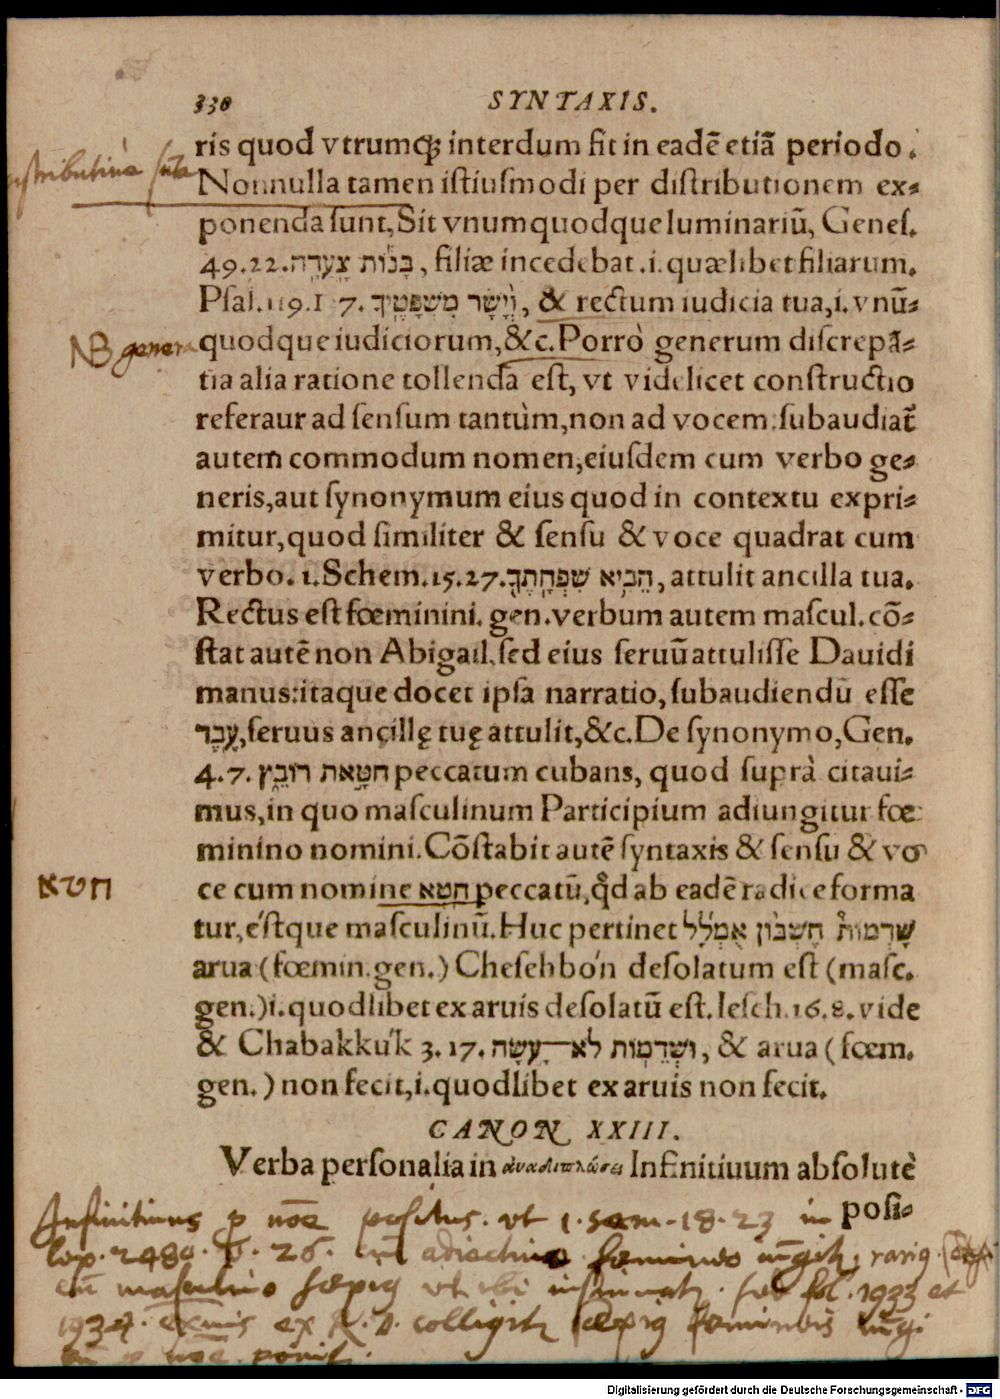 330 SYNTAXIS.
ris quod vtrumq́; interdum fit in eadē etiā periodo.
Nonnulla tamen istiusmodi per distributionem ex-
ponenda sunt, Sit vnumquodque luminariū, Genes.
49.22. בָּנ֔וֹת צָעֲדָ֖ה, filiæ incedebat .i. quælibet filiarum.
Psal. 119.1 7. וְ֝יָשָׁ֗ר מִשְׁפָּטֶֽיךָ, & rectum iudicia tua, i. vnū-
NB genera quodque iudiciorum, &c. Porrò generum discrepā-
tia alia ratione tollenda est, vt videlicet constructio
referaur ad sensum tantùm, non ad vocem: subaudiat᷑
autem commodum nomen, eiusdem cum verbo ge-
neris, aut synonymum eius quod in contextu expri-
mitur, quod similiter & sensu & voce quadrat cum
verbo. 1. Schem. 15.27. הֵבִ֥יא שִׁפְחָֽתְךָ֖, attulit ancilla tua.
Rectus est fœminini. gen. verbum autem mascul. cō-
stat autē non Abigail, sed eius seruū attulisse Dauidi
manus: itaque docet ipsa narratio, subaudiendū esse
עֶ֚בֶד, seruus ancillę tuę attulit, &c. De synonymo, Gen.
4.7. חַטָּ֣את רוֹבֵ֑ץ peccatum cubans, quod suprà citaui-
mus, in quo masculinum Participium adiungitur fœ
minino nomini. Cōstabit autē syntaxis & sensu & vo
חטא ce cum nomine חֵטְא peccatū, q̄d ab eadē radice forma
tur, éstque masculinū. Huc pertinet שַׁדְמוֹת֩ חֶשְׁבּ֨וֹן אֻמְלָ֜ל
arua (fœmin. gen.) Cheschbón desolatum est (masc.
gen.) i. quodlibet ex aruis desolatū est. Iesch. 16.8. vide
& Chabakkúk 3. 17. וּשְׁדֵמ֖וֹת לֹא־עָ֣שָׂה, & arua (fœm.
gen.) non fecit, i. quodlibet ex aruis non fecit.
CANON XXIII.
Verba personalia in ἀναδιπλώσει Infinitiuum absolutè
posi-
Infinitivus p noē positus. vt 1. Sam. 18. 23 in
26. adiectivo fœmineo rariq
masculino sæpiq vt ibi fol. 1933 et
1934. ex R. D. colligitr sæpiq
noē ponit.